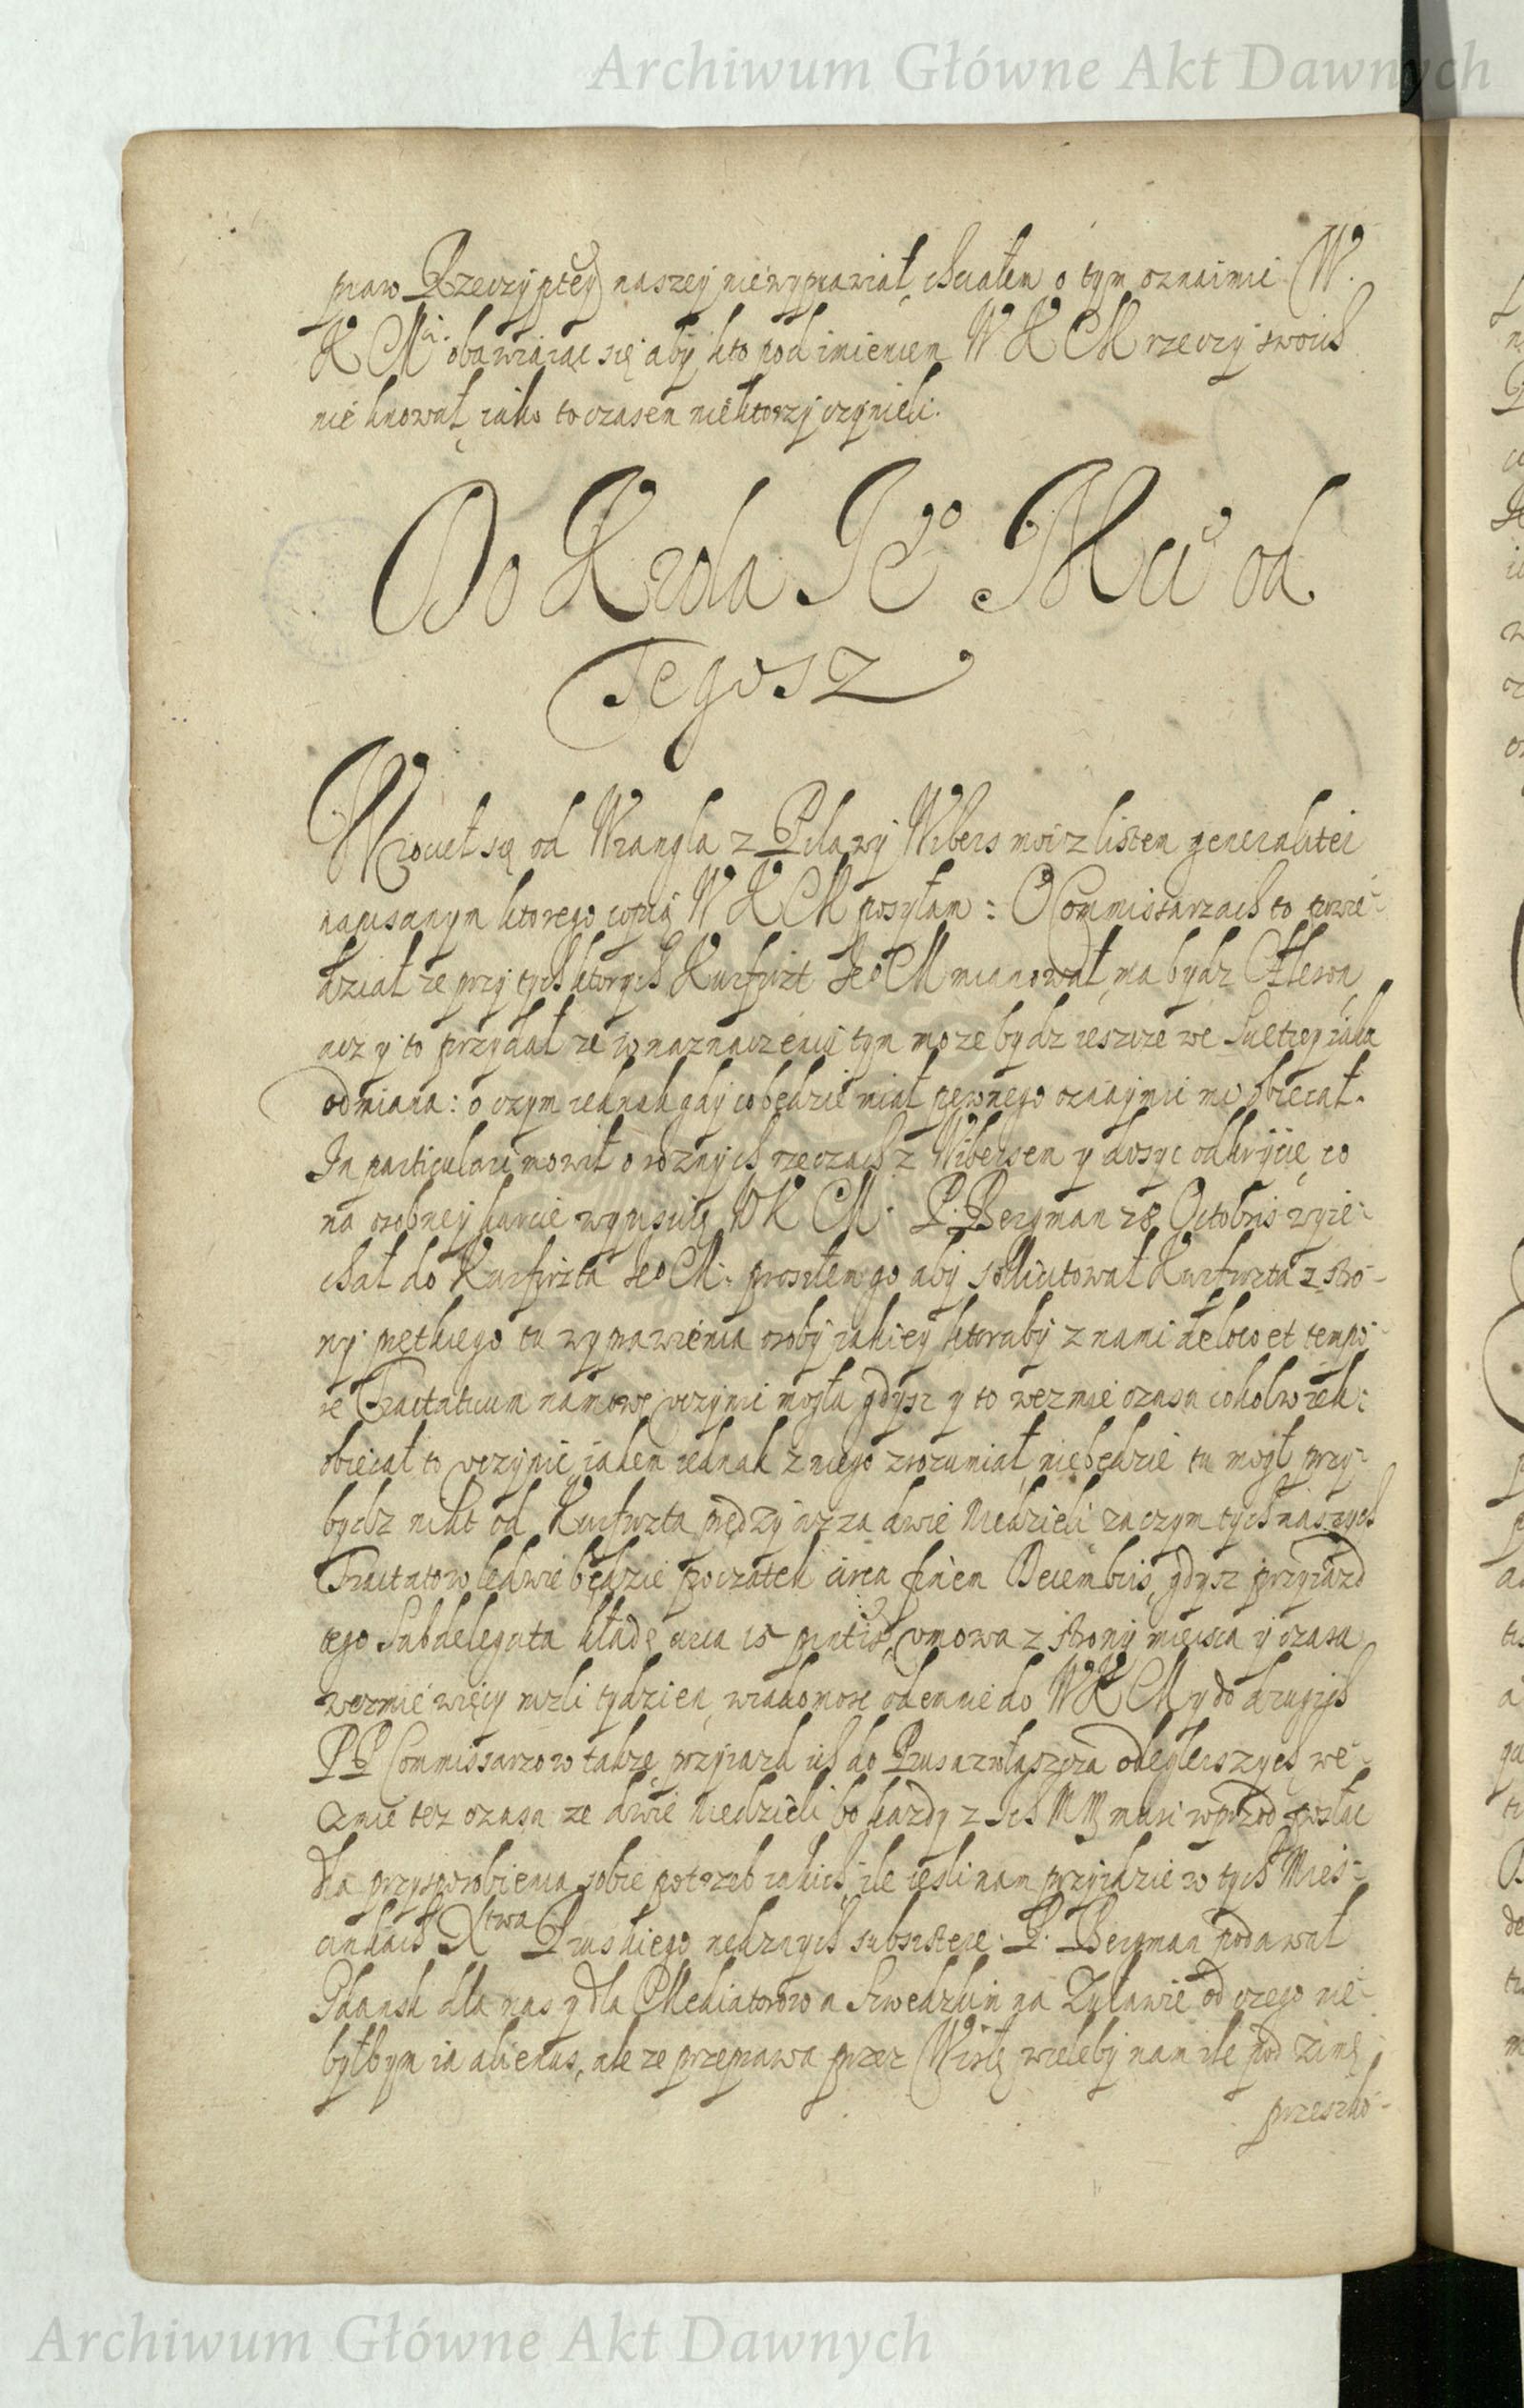 Archiwum Główne Akt Dawnych
praw Rzeczyptey naszey niewyprawiał, chciałem o tym oznaimic W.
K Mci. obawiaiąc się aby kto pod imieniem W K M rzeczy swoich
nie knował, iako to czasem niektorzy czynieli.
Do Krola Jeo Mci od
Tegosz
Wrocieł się od Wrangla z Pilawy Wibers moi z listem generaliter
napisanym ktorego copią W K M posyłam: O Commissarzach to powie-
dział ze przy tych ktorych Kurfirzt Jeo M mianował, ma bydz
acz y to przydał ze w naznaczeniu tym moze bydz ieszcze we Suetiey iaka
odmiana: o czym iednak gdy co będzie miał pewnego oznaymic mi obiecał.
In particulari mowił o roznych rzeczach z Wibersem y dosyc odkrycie co
na osobney karcie wypiszę W K M. P. Bergman 28 Octobris wyie-
chał do Kurfirzta Jeo M: prosiłem go aby sollicitował Kurfirzta z stro-
ny prętkiego tu wyprawienia osoby iakiey ktoraby z nami de loco et tempo-
re Tractatuum namowę uczynic mogła gdysz y to wezmie czasu cokolwiek:
obiecał to uczynic, iakem iednak z niego zrozumiał, niebędzie tu mogł przy-
bydz nikt od Kurfirzta prędzy asz za dwie Niedzieli zaczym tych naszych
Tractatow ledwie będzie początek circa finem Decembris, gdysz przyiazd
tego Subdelegata kładę circa 15 pntis, umowa z strony mieisca y czasu
wezmie więcy nizli tydzien, wiadomosc odemnie do W K M y do drugych
P P Commissarzow takze przyiazd ich do Prus azwłaszcza odegleiszych we-
zmie tez czasu ze dwie Niedzieli bo kazdy z Ich MM musi wprzod posłac
dla przysposobienia sobie potrzeb iakich, ile iesli nam przyidzie w tych Mies-
cinkach Xtwa Pruskiego nędznych subsistere. P. Bergman podawał
Gdansk dla nas y dla Mediatorow a Szwedzkim na Zuławie od czego nie-
byłbym ia alienus, ale ze przeprawa przez Wisłę wieleby nam ile pod zimę
przeszko-
Archiwum Główne Akt Dawnych